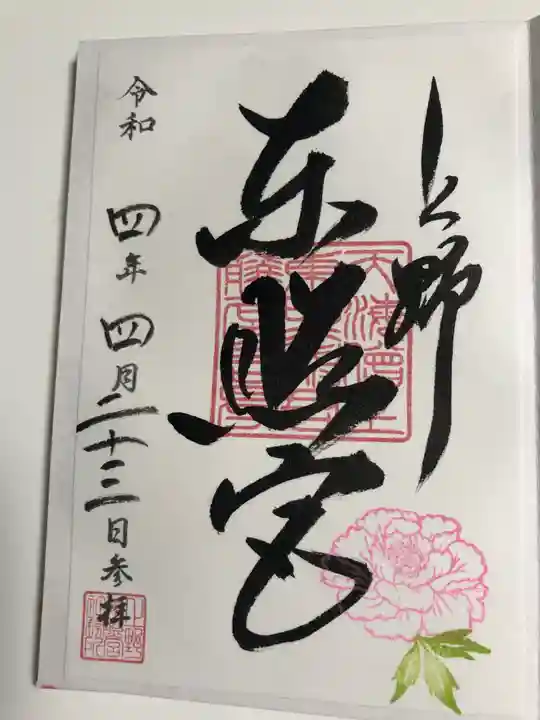 上野
東照宮
令和四年四月二十三日参拝